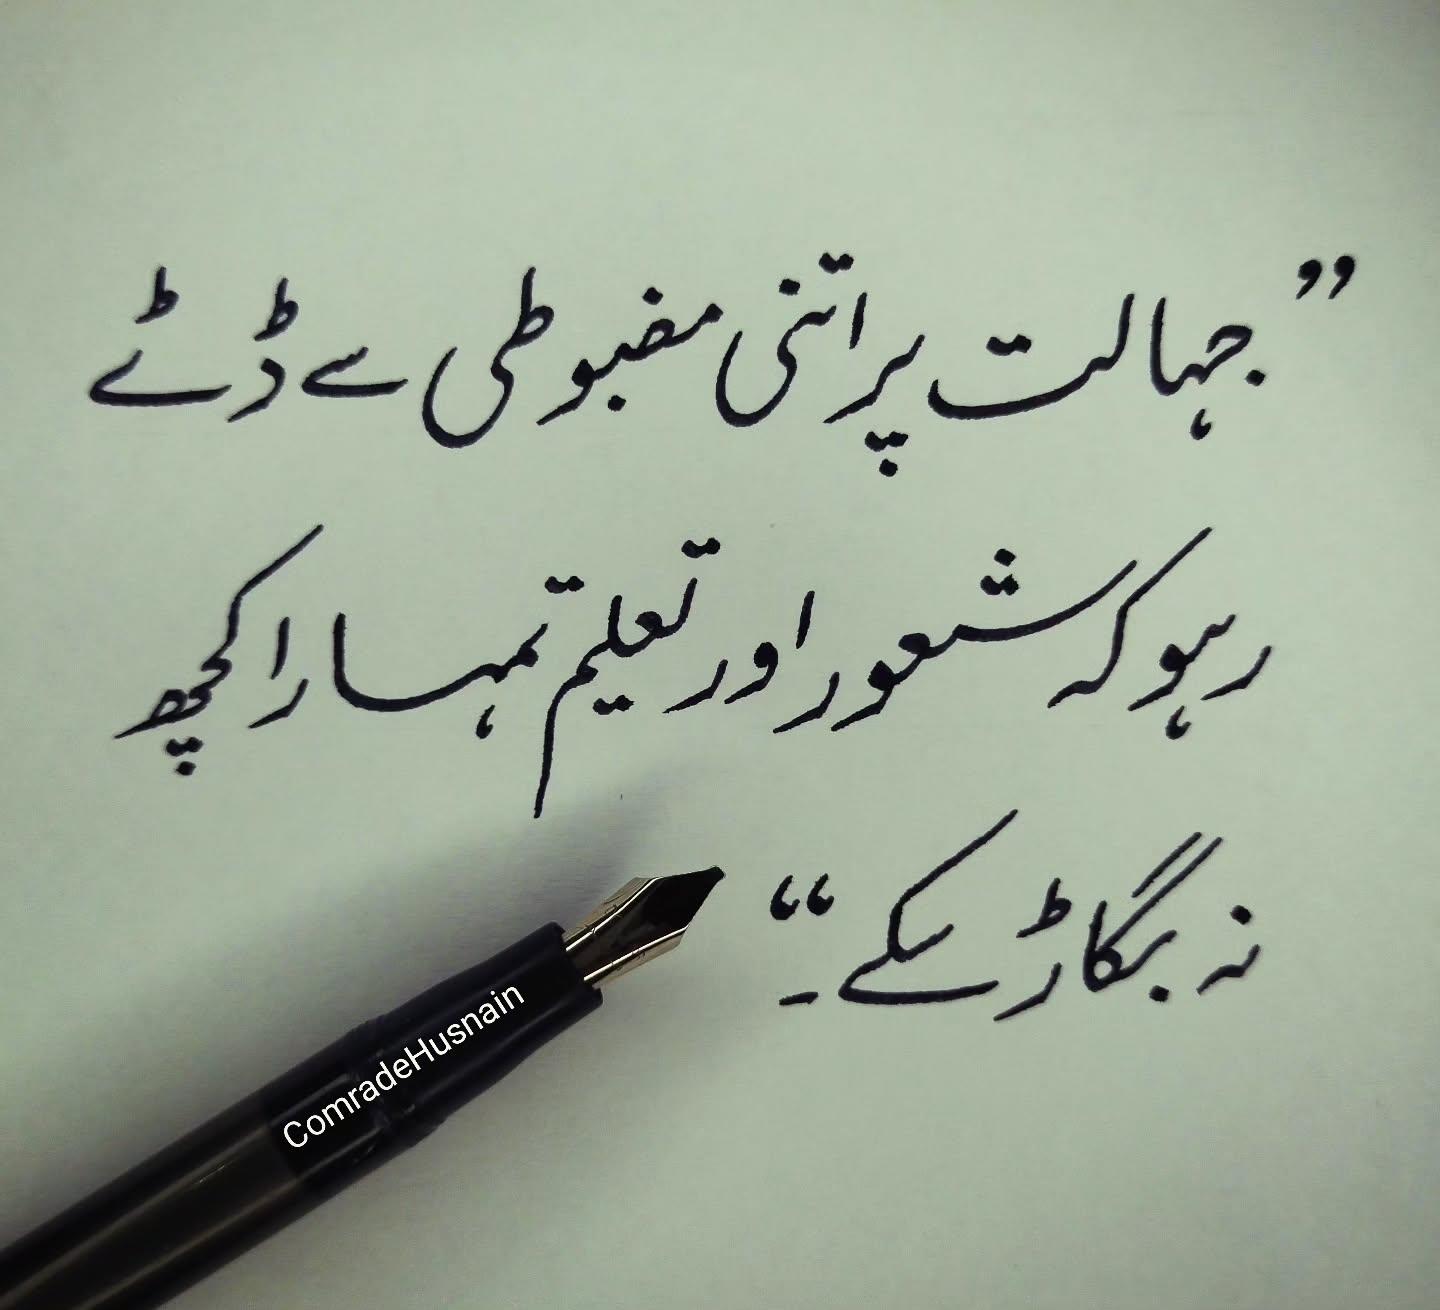 ”جہالت پر اتنی مضبوطی سے ڈٹے
رہو کہ شعور اور تعلیم تمہارا کچھ
نہ بگاڑ سکے۔“
ComradeHusnain